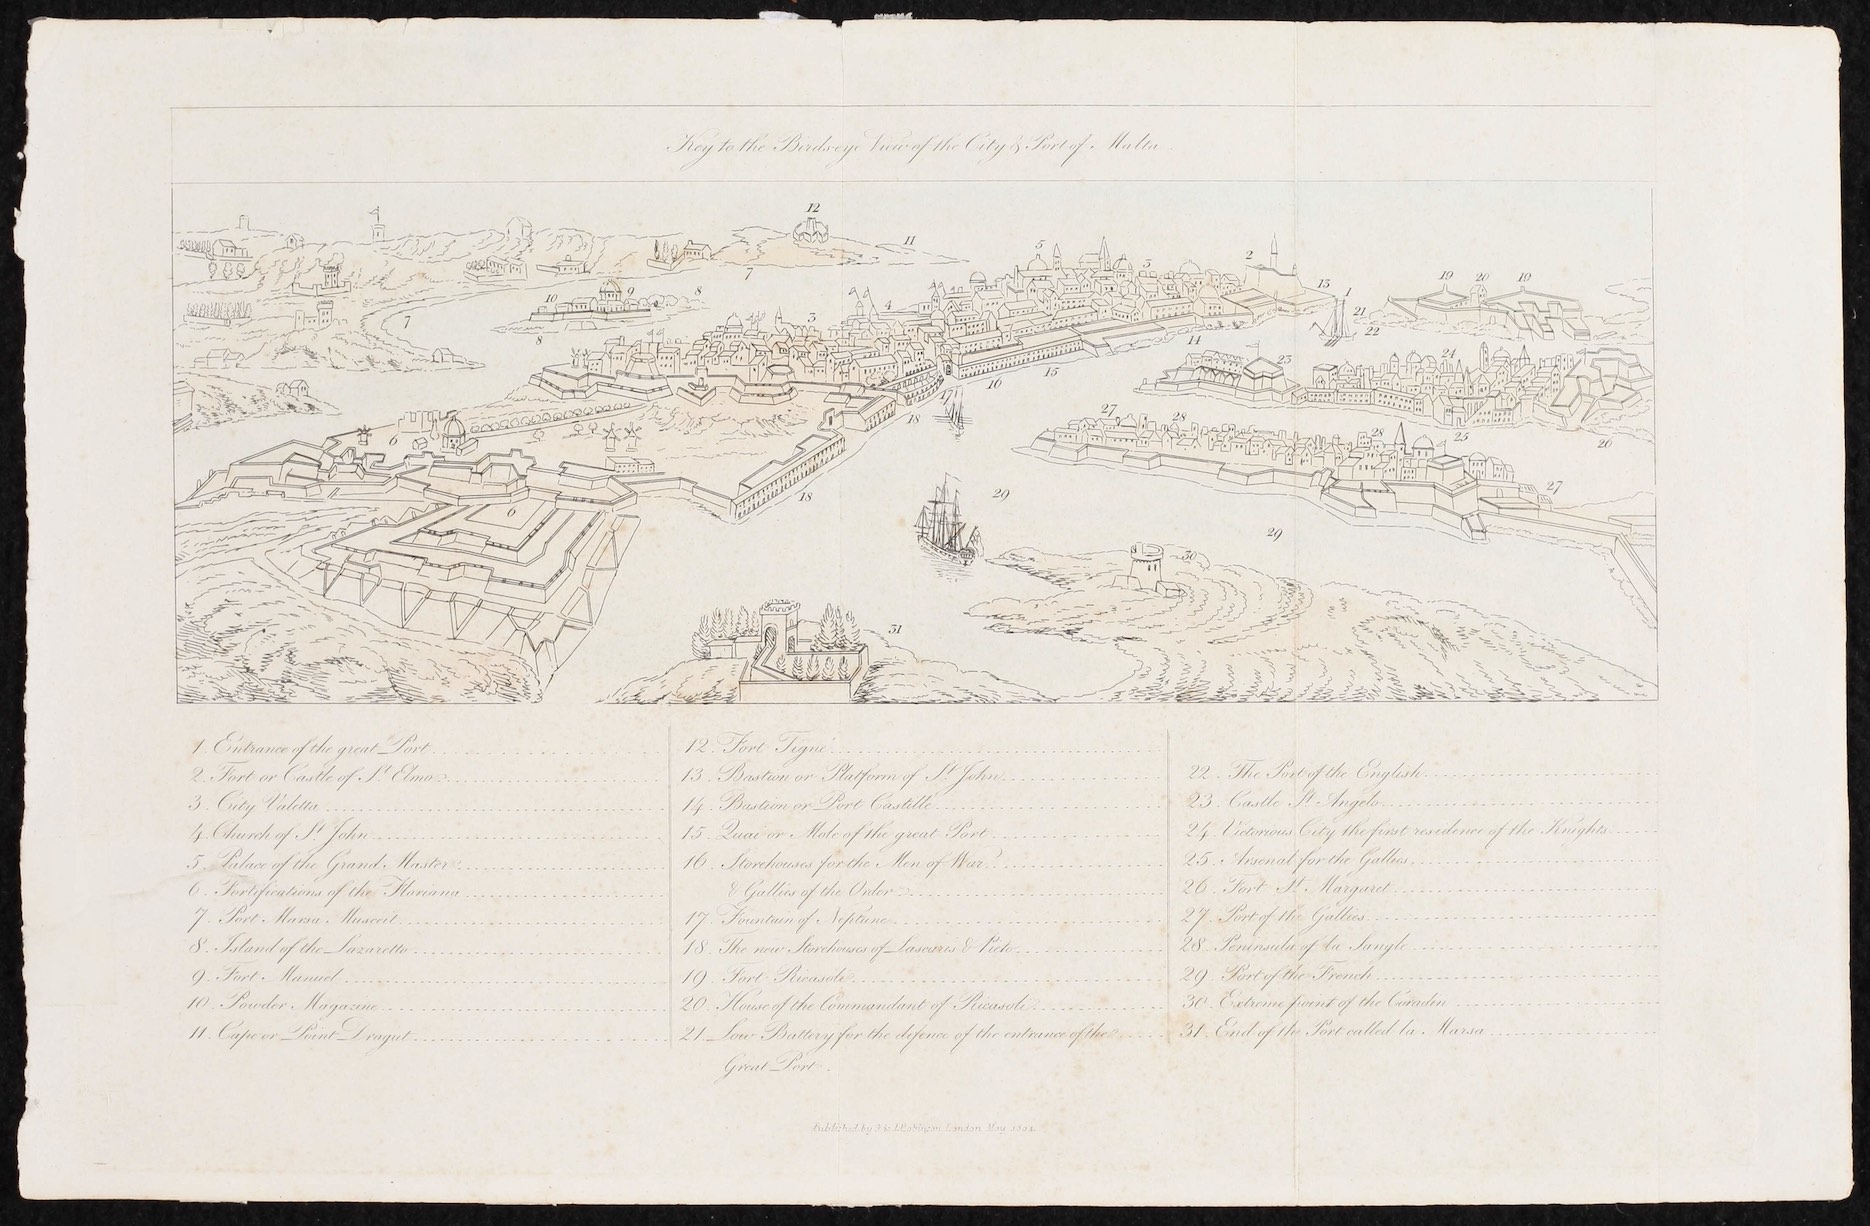 Key to the Birdseye View of the City & Port of Malta
12
11
5
3
2
13
1
19
20
19
7
8
10
9
4
21
22
7
3
8
14
23
24
15
16
17
18
27
28
28
25
26
6
18
29
27
6
29
30
31
1. Entrance of the great Port
2. Fort or Castle of St. Elmo
3. City Valetta
4. Church of St. John
5. Palace of the Grand Master
6. Fortifications of the Floriana
7. Port Marsa Musceit
8. Island of the Lazaretto
9. Fort Manuel
10. Powder Magazine
11. Cape or Point Dragut
12. Fort Tigné
13. Bastion or Platform of St. John
14. Bastion or Port Castille
15. Quai or Mole of the great Port
16. Storehouses for the Men of War
& Gallies of the Order
17. Fountain of Neptune
18. The new Storehouses of Lascaris & Pieto
19. Fort Ricasoli
20. House of the Commandant of Ricasoli
21. Low Battery for the defence of the entrance of the
Great Port.
22. The Port of the English
23. Castle St. Angelo
24. Victorious City the first residence of the Knights
25. Arsenal for the Gallies
26. Fort St. Margaret
27. Port of the Gallies
28. Peninsula of la Sangle
29. Port of the French
30. Extreme point of the Coradin
31. End of the Port called la Marsa
Published by G. & J. Robinson London May 1804